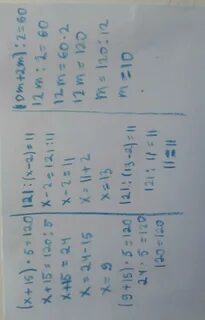 (x+15)·5=120
x+15=120:5
x+15=24
x=24-15
x=9
(9+15)·5=120
24·5=120
120=120
121:(x-2)=11
x-2=121:11
x-2=11
x=11+2
x=13
121:(13-2)=11
121:11=11
11=11
(10m+2m):2=60
12m:2=60
12m=60·2
12m=120
m=120:12
m=10